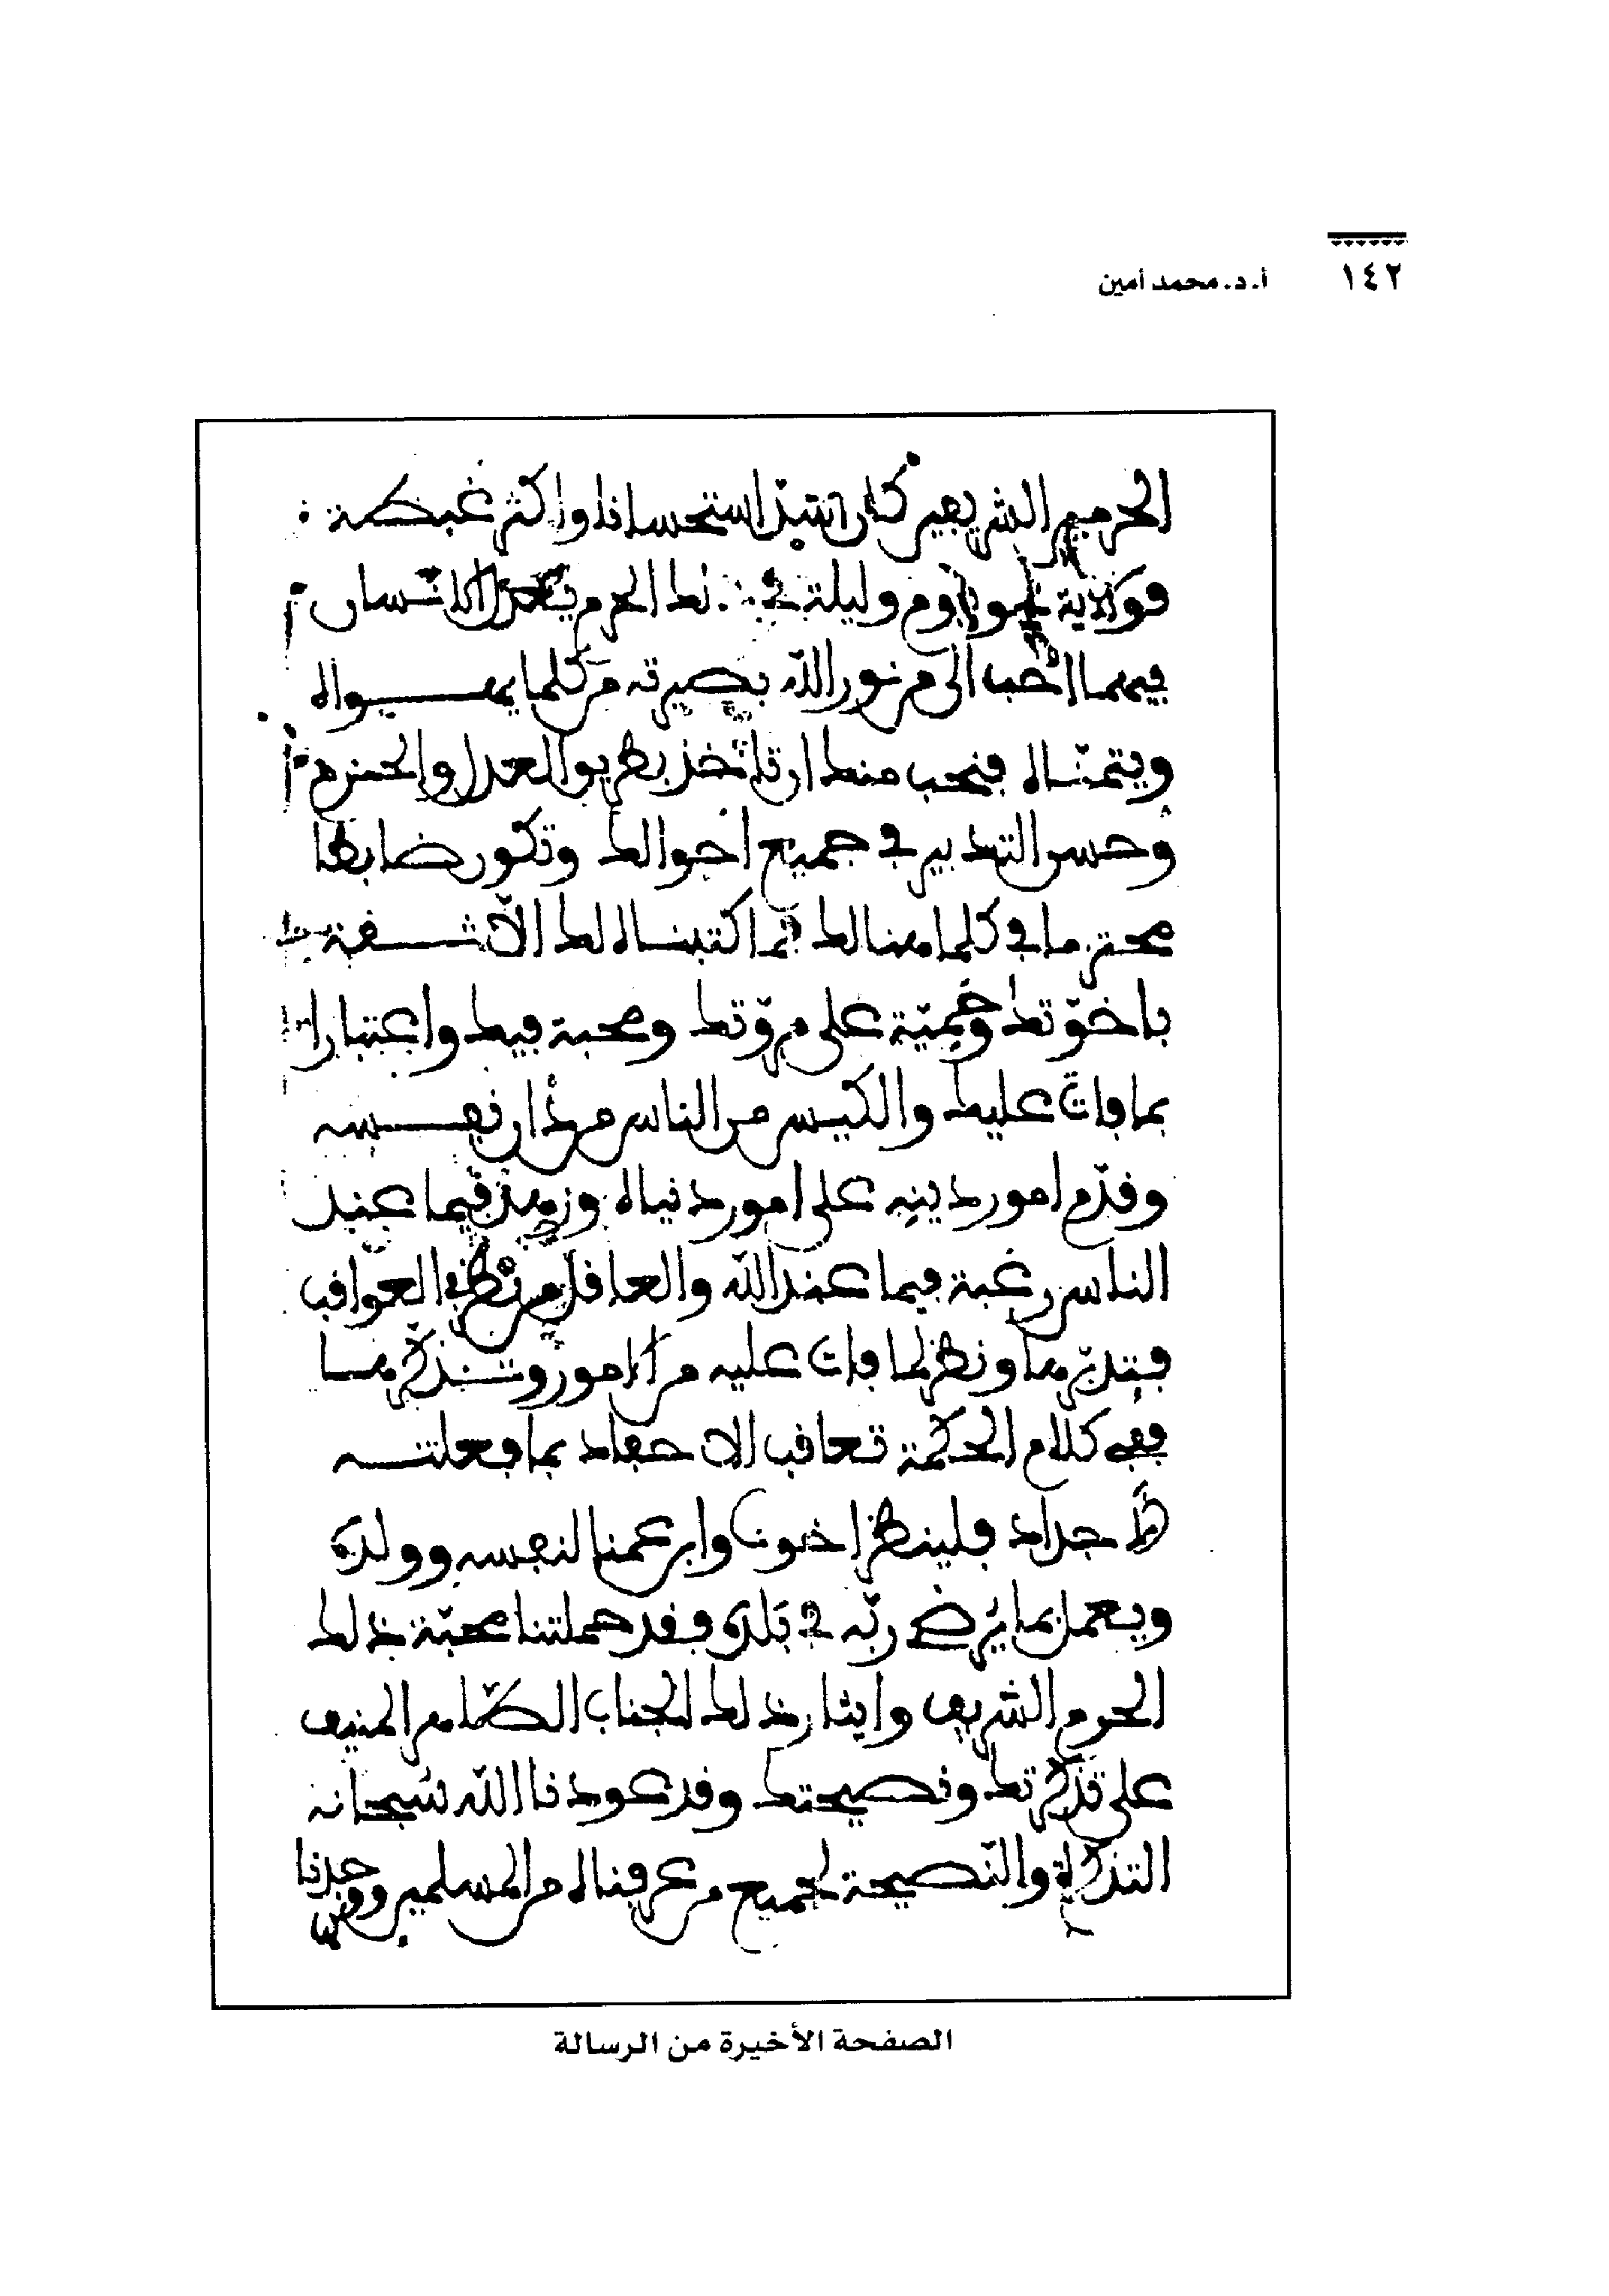 ١٤٢
أ. د. محمد أمين
الحرمين الشريفين كان اشد استحسانا واكثر غبطة
يوم وليلة في ذلك الحرم الانسان
فيهما احب الى من نور الله بصيرته من كلما يهواه
ويتمناه فنحب منك ان تاخذ بطريق العدل والحزم
وحسن التدبير في جميع احوالك وتكون ضابطا
محترما في كلامنا لك فما كتبناه لك الا شفقة
باخوتك وحمية على مروتك ومحبة فيك واعتبارا
بما فات عليك والكيس من الناس من دان نفسه
وقدم امور دينه على امور دنياه وزهد فيما عند
الناس رغبة فيما عند الله والعاقل من نظر في العواقب
فتدبرها ونظر لما فات عليه من الامور وتذكرها
ففي كلام الحكمة تعاقب الاحفاد بما فعلته
الاجداد فلينظر اخونا وابن عمنا لنفسه وولده
ويعمل بما يرضي ربه في بلده وقد حملتنا محبة ذلك
الحرم الشريف وايثار ذلك الجناب الطاهر المنيف
على تذكرتك ونصيحتك وقد عودنا الله سبحانه
التذكرة والنصيحة لجميع من عرفناه من المسلمين ووجدنا
الصفحة الأخيرة من الرسالة